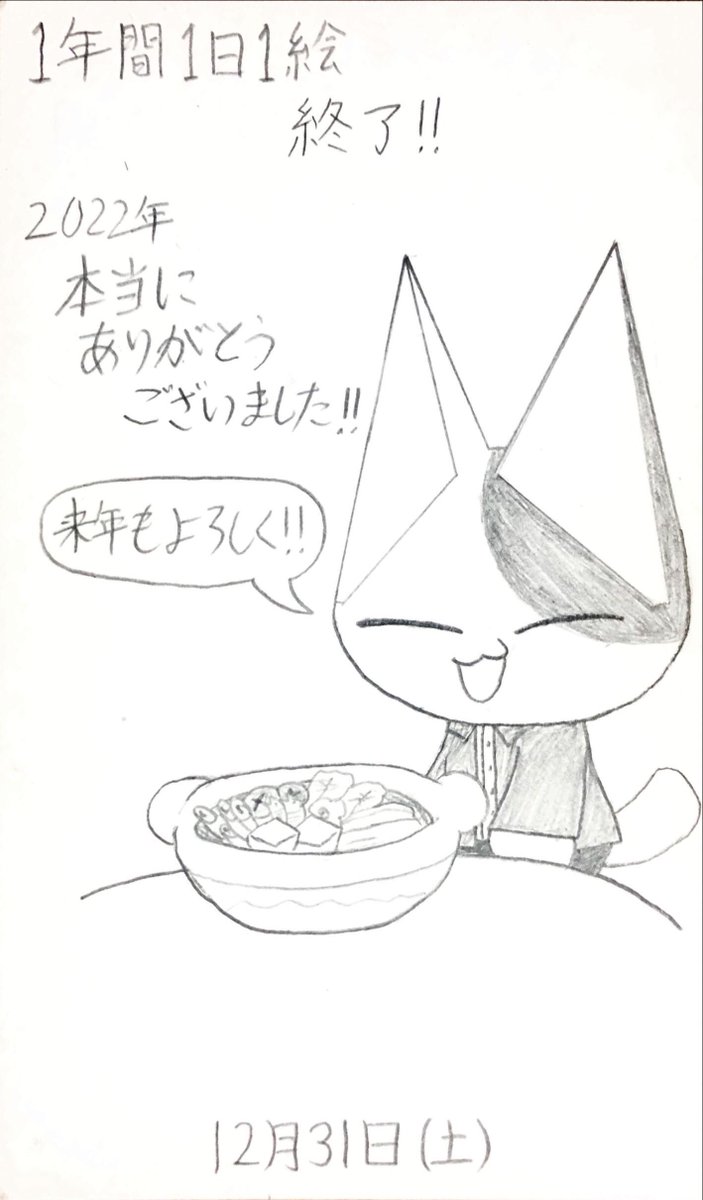 1年間1日1絵
終了!!
2022年
本当に
ありがとう
ございました!!
来年もよろしく!!
12月31日(土)